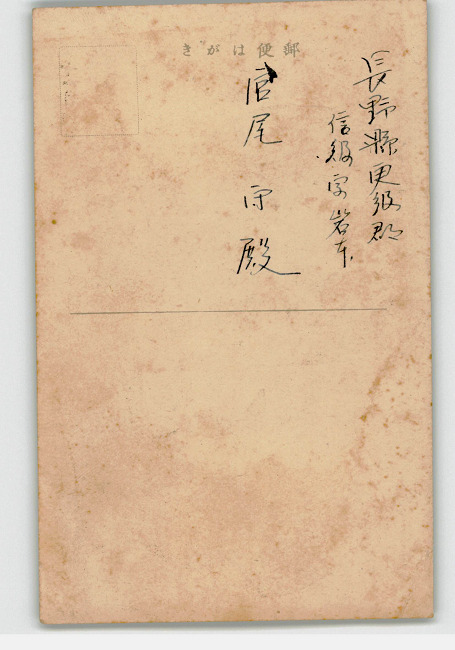 郵便はがき
長野縣更級郡
信級字岩本
尾守殿